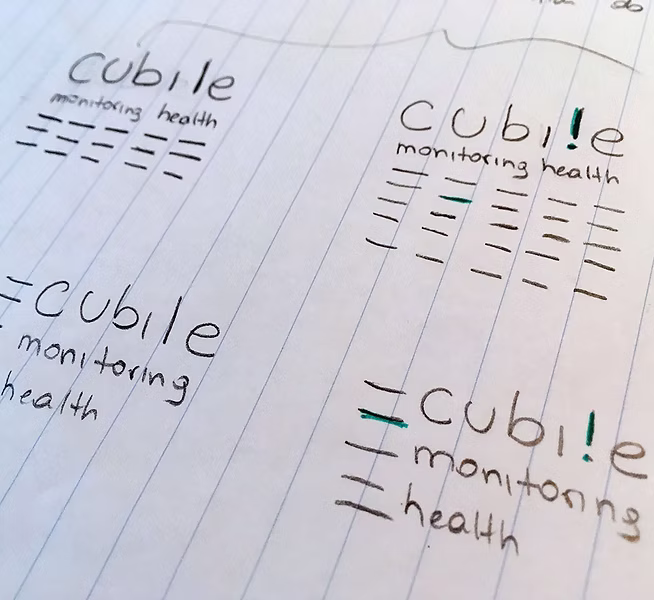 cubile
monitoring health
cubi!e
monitoring health
cubile
monitoring
health
cubi!e
monitoring
health